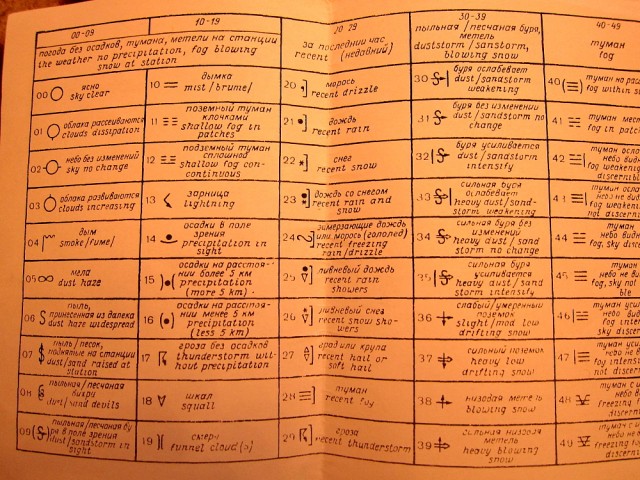 00-09
10-19
20-29
30-39
40-49
погода без осадков, тумана, метели на станции
the weather no precipitation, fog blowing
snow at station
за последний час
recent (недавний)
пыльная / песчаная буря,
метель
duststorm / sandstorm,
blowing snow
туман
fog
00 ясно
sky clear
10 дымка
mist /brume/
20 морось
recent drizzle
30 буря ослабевает
dust/sandstorm
weakening
40 туман на
fog within
01 облака рассеиваются
clouds dissipation
11 поземный туман
клочками
shallow fog in
patches
21 дождь
recent rain
31 буря без изменении
dust/sandstorm no
change
41 туман
fog in patch
02 небо без изменений
sky no change
12 поземный туман
сплошной
shallow fog con-
continuous
22 снег
recent snow
32 буря усиливается
dust/sandstorm
intensify
42 туман
fog weakening
discernible
03 облака развиваются
clouds increasing
13 зарница
lightning
23 дождь со снегом
recent rain and
snow
33 сильная буря
ослабевает
heavy dust/sand-
storm weakening
43 туман
небо не
fog weakening
not discern
04 дым
smoke/fume/
14 осадки в поле
зрения
precipitation in
sight
24 замерзающие дождь
или морось (гололед)
recent freezing
rain/drizzle
34 сильная буря без
изменений
heavy dust / sand
storm no change
44 туман
небо
fog, sky disc
05 мгла
dust haze
15 осадки на расстоя-
нии более 5 км
precipitation
(more 5 km)
25 ливневый дождь
recent rain
showers
35 сильная буря
усиливается
heavy dust / sand
storm intensify
45 туман
небо не
fog, sky not
ble
06 пыль,
принесенная из далека
dust haze widespread
16 осадки на расстоя-
нии менее 5 км
precipitation
(less 5 km)
26 ливневый снег
recent snow sho-
wers
36 слабый/умеренный
поземок
slight/mod low
drifting snow
46 туман
небо
fog
sky discern
07 пыль/песок,
поднятые на станции
dust/sand raised at
station
17 гроза без осадков
thunderstorm wit-
hout precipitation
27 град или крупа
recent hail or
soft hail
37 сильный поземок
heavy low
drifting snow
47 туман
небо не
fog
not discern
08 пыльная / песчаная
вихри
dust/sand devils
18 шквал
squall
28 туман
recent fog
38 низовая метель
blowing snow
48 туман
небо
freezing
discern
09 пыльная/песчаная бу-
ря в поле зрения
dust/sandstorm in
sight
19 смерч
funnel cloud(s)
29 гроза
recent thunderstorm
39 сильная низовая
метель
heavy blowing
snow
49 туман
небо не
freezing
not discern